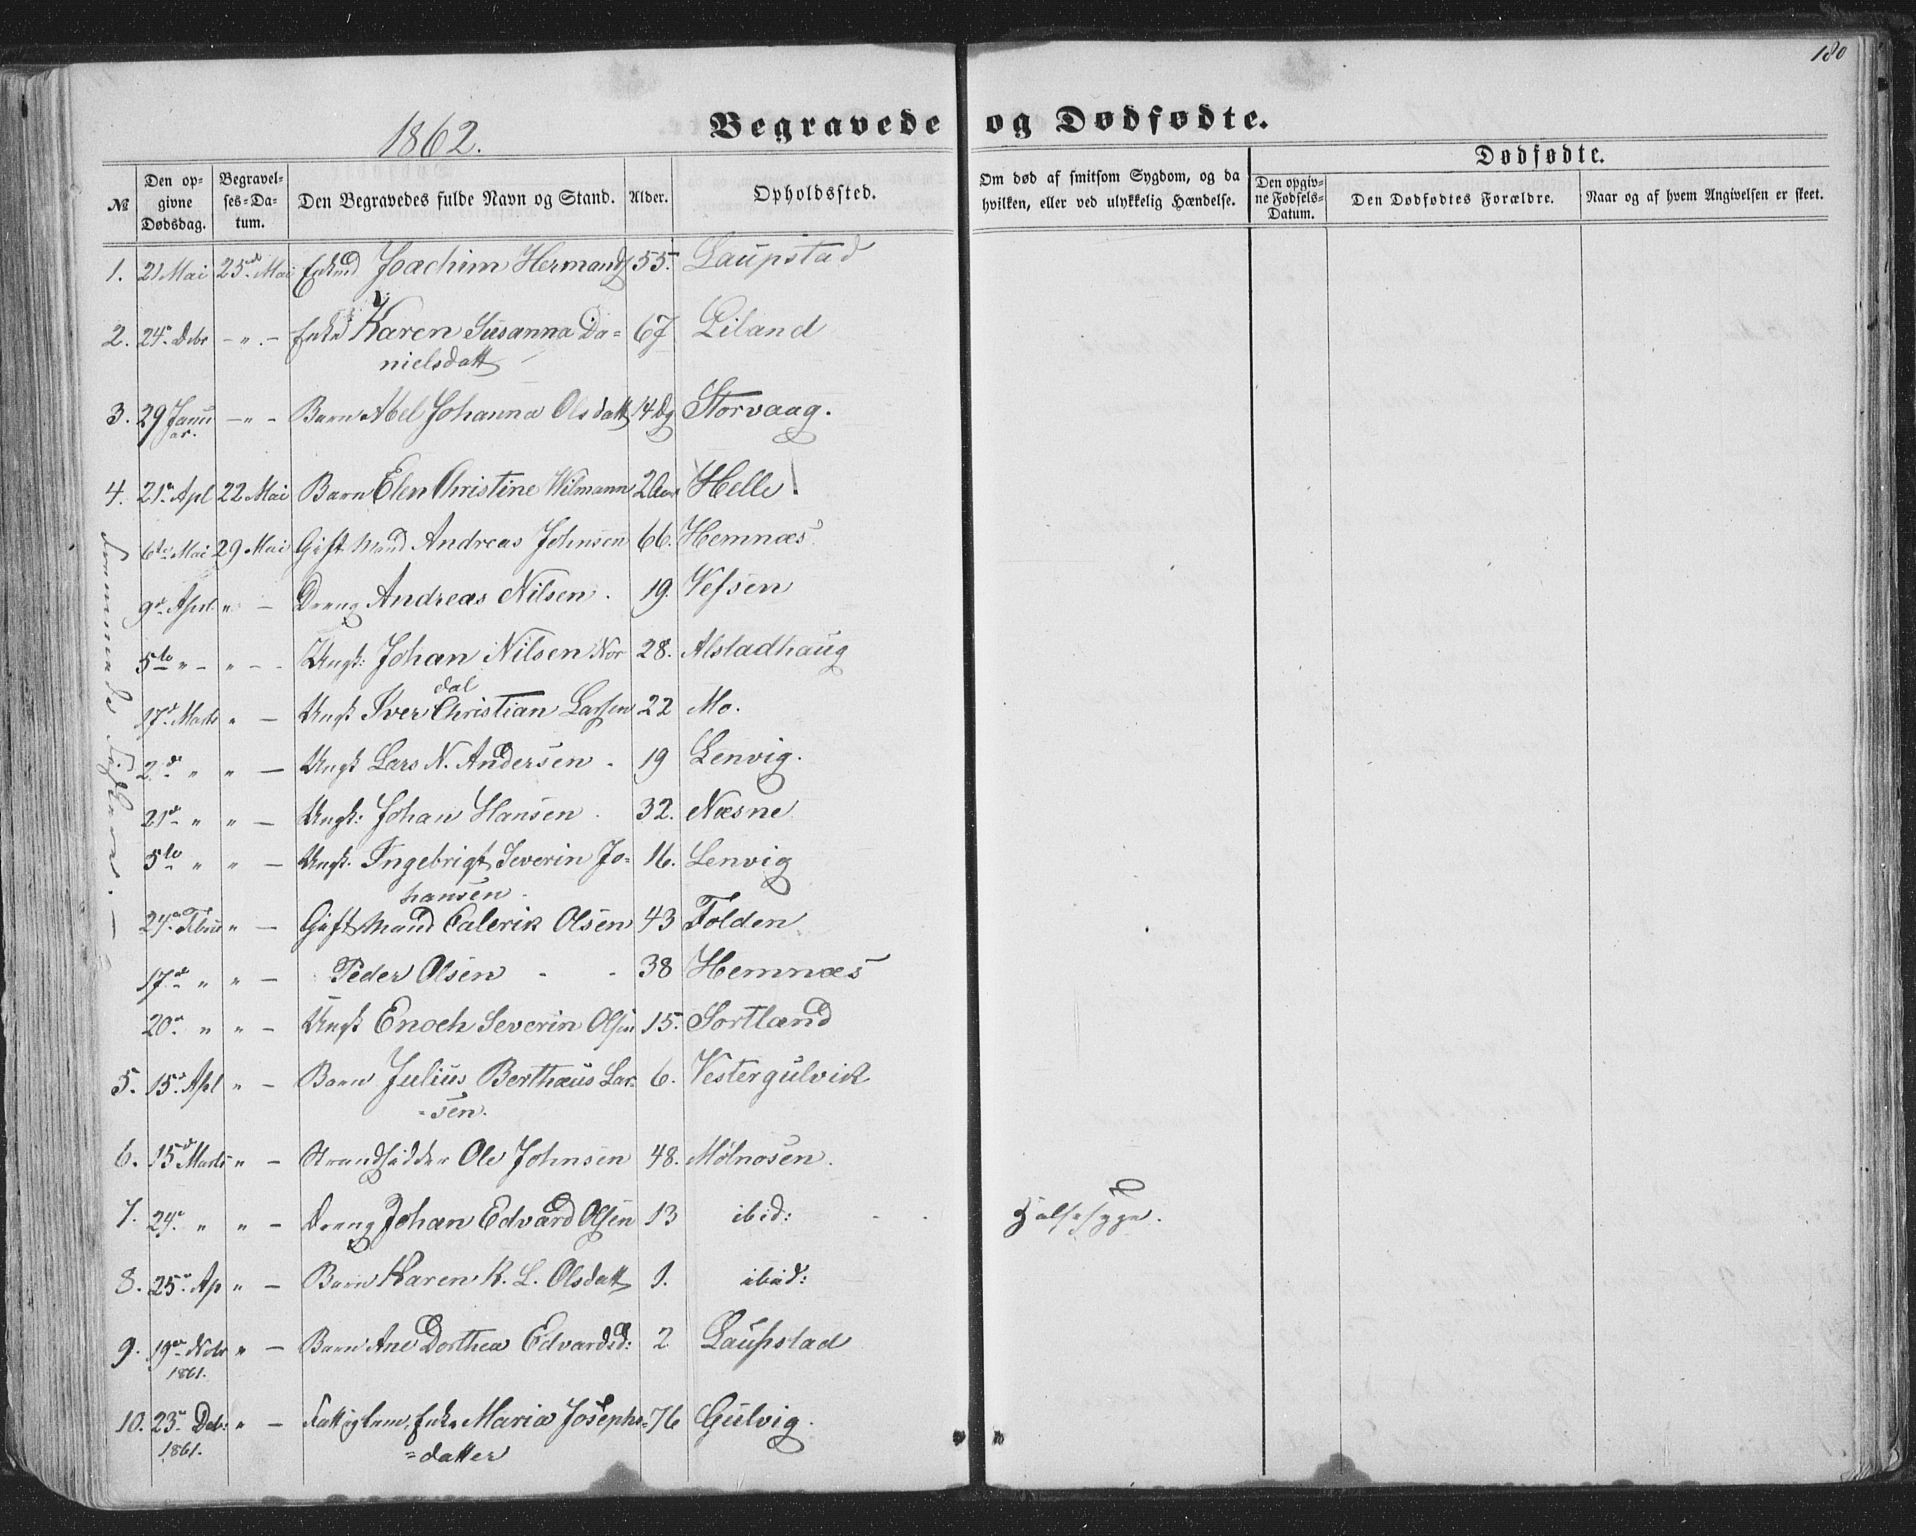 180
1862.
Begravede og Dødfødte.
№
Den opgivne Dødsdag.
Begravelses-Datum.
Den Begravedes fulde Navn og Stand.
Alder.
Opholdssted.
Om død af smitsom Sygdom, og da hvilken, eller ved ulykkelig Hændelse.
Dødfødte.
Den opgivne Fødsels-Datum.
Den Dødfødtes Forældre.
Naar og af hvem Angivelsen er skeet.
1. 21 Mai 25de Mai Joachim Hermands 55. Laupstad
2. 24. Debr — " — Enke Karen Susanna Da= 67 Liland
nielsdatt
3. 29 Janu — " — Barn Abel Johanna Olsdatt 14 Dg Storvaag.
ar.
4. 21. Apl 22 Mai Barn Elen Christine Wilmann 2 Aar Helle.
6te Mai 29 Mai Gift Mand Andreas Johnsen 66. Hemnæs
9. April " — Dreng Andreas Nilsen. 19. Vefsen
5te " — " — Ungk: Johan Nilsen Nor 28. Alstadhaug
dal
17. Marts " — Ungk Iver Christian Larsen 22 Mo.
2d " " — Ungk Lars N. Andersen. 19 Lenvig.
21d " " — Ungk: Johan Hansen. 32. Næsne
5te " " — Ungk. Ingebrigt Severin Jo- 16. Lenvig
hansen.
24. Febru " — Gift Mand Calerik Olsen 43 Folden
17d " " — Peder Olsen - - 38 Hemnæs
20. " " — Ungk Enoch Severin Olsen 15. Sortland
5. 15. Apl " — Barn Julius Berthæus Lar- 6. Vestergulvik
-sen.
6. 15d Marts " — Strandsidder Ole Johnsen 48. Mølnosen.
7. 24. " " — Dreng Johan Edvard Olsen 13 ibid: Halssyge.
8. 25. Ap " — Barn Karen K. L. Olsdatt 1. ibid:
9. 19. Nobr " — Barn Ane Dorthea Edvardsd: 2 Laupstad
1861.
10. 23. Deb: " — Fattiglem, Enke Maria Josephs= 76 Gulvig.
1861. =datter